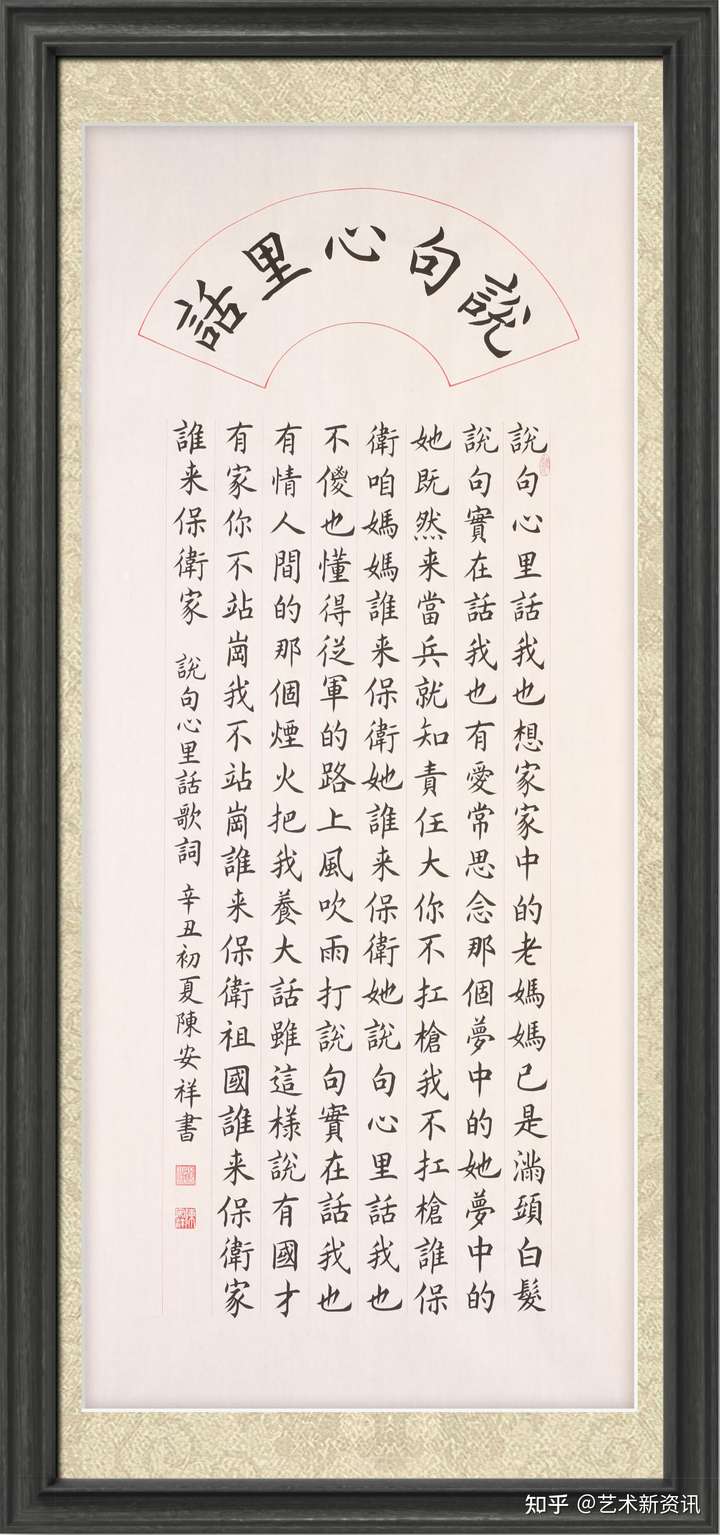 說句心里話
說句心里話我也想家家中的老媽媽已是滿頭白髮
說句實在話我也有愛常思念那個夢中的她夢中的
她既然来當兵就知責任大你不扛槍我不扛槍誰保
衛咱媽媽誰来保衛她誰来保衛她說句心里話我也
不傻也懂得従軍的路上風吹雨打說句實在話我也
有情人間的那個煙火把我養大話雖這様說有國才
有家你不站崗我不站崗誰来保衛祖國誰来保衛家
誰来保衛家 說句心里話歌詞 辛丑初夏陳安祥書
知乎 @艺术新资讯